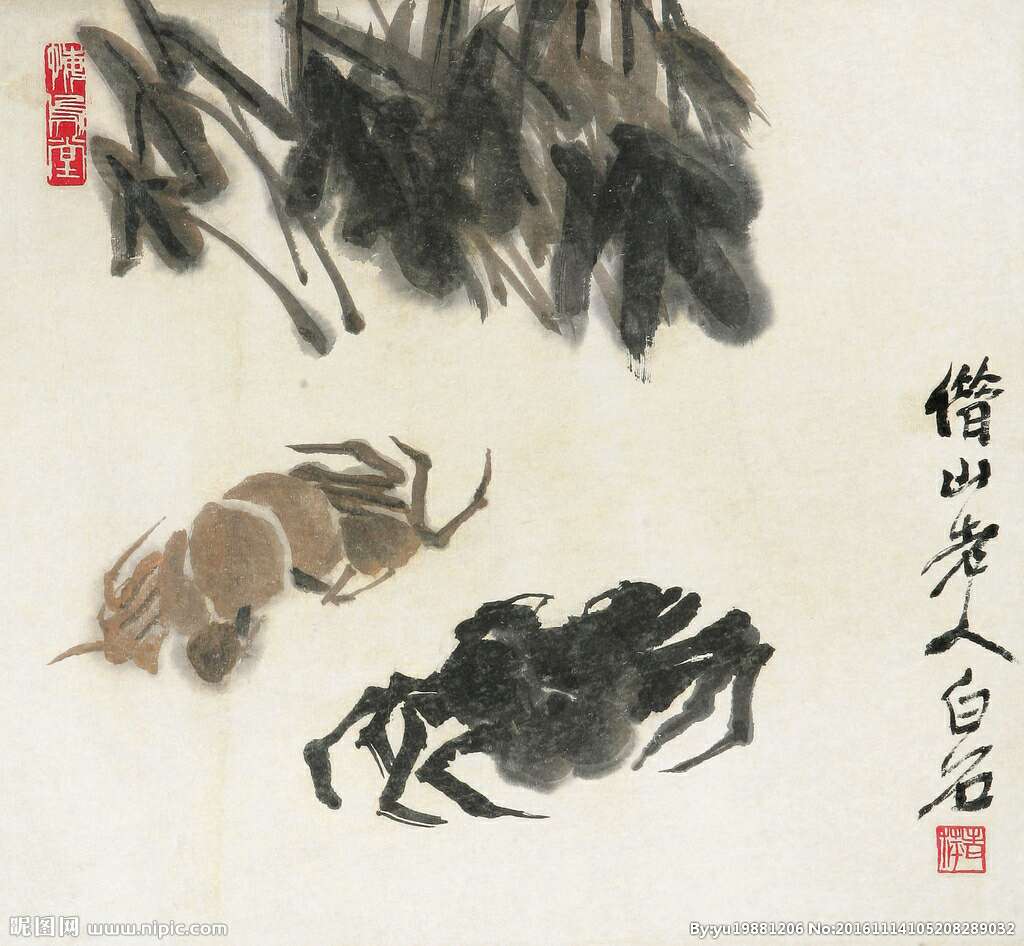 悔烏堂
借山老人白石
昵图网 www.nipic.com
By:yu19881206 No:20161114105208289032